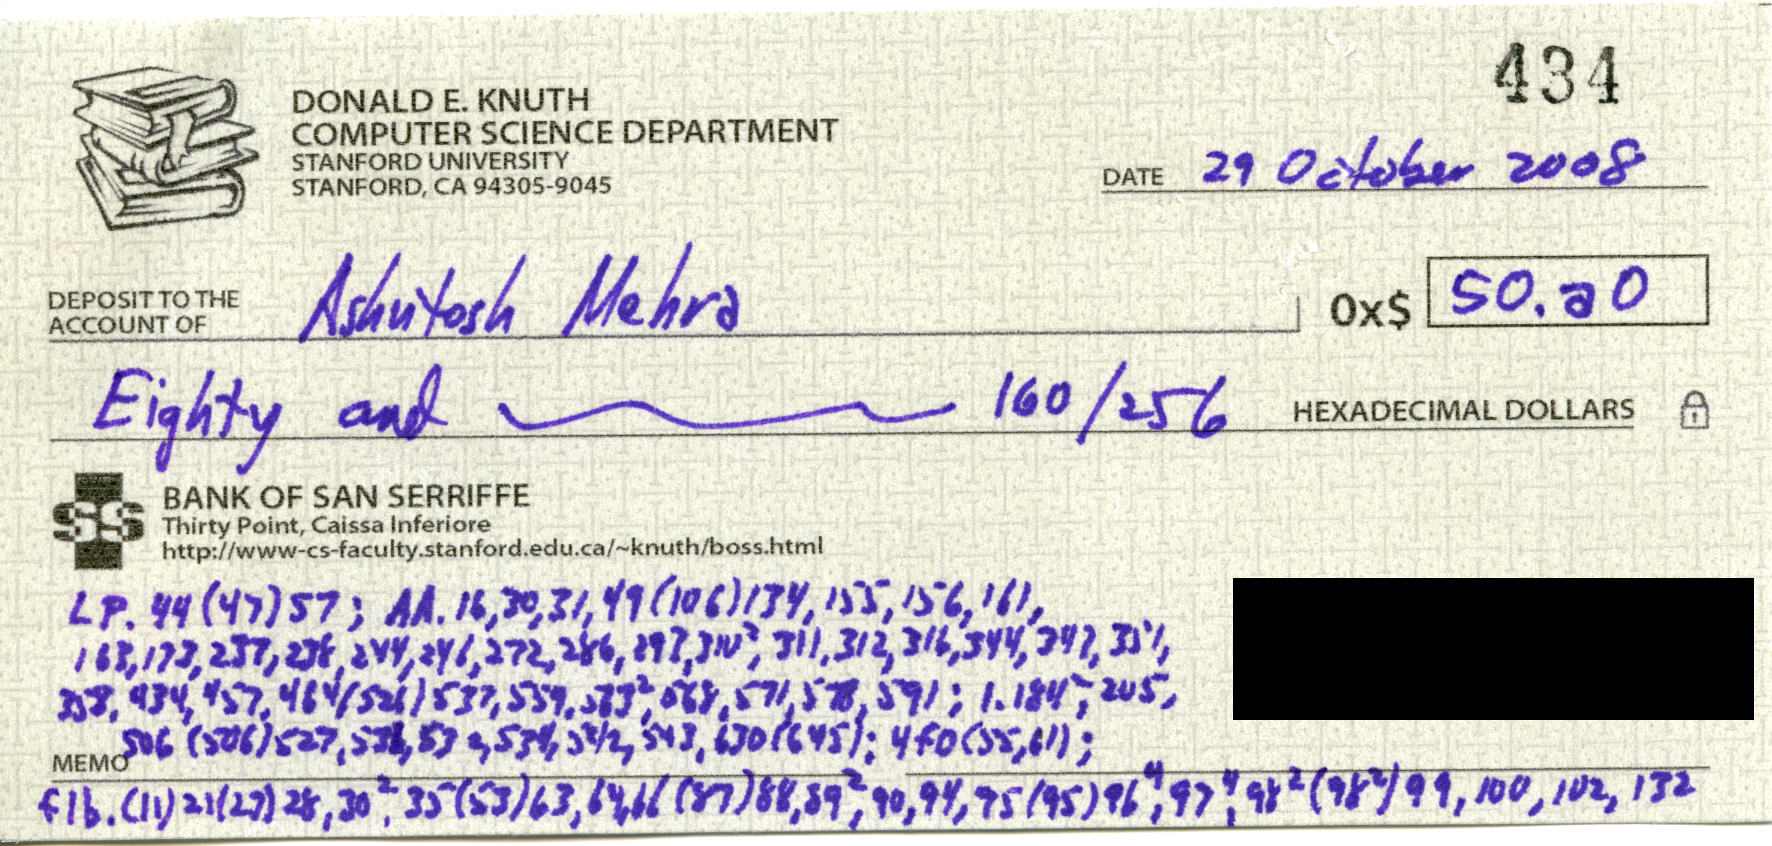 434
DONALD E. KNUTH
COMPUTER SCIENCE DEPARTMENT
STANFORD UNIVERSITY
STANFORD, CA 94305-9045
DATE 29 October 2008
DEPOSIT TO THE
ACCOUNT OF Ashutosh Mehra 0x$ 50.a0
Eighty and 160/256 HEXADECIMAL DOLLARS
SS BANK OF SAN SERRIFFE
Thirty Point, Caissa Inferiore
http://www-cs-faculty.stanford.edu.ca/~knuth/boss.html
LP. 44(47)57; AA. 16,30,31,49(106)134,155,156,161,
163,173,237,238,244,246,272,286,297,310²,311,312,316,344,347,
358,434,457,464(526)537,559, 568,571,578,591; 1.184 205,
506(506)527, 534, 543,630(645); 4f0(55,61);
MEMO
f1b.(11)21(27)28,30²,35(53)63,64,66(87)88,89²,90,94,95(95)96⁴,97⁴,98²(98²)99,100,102,132